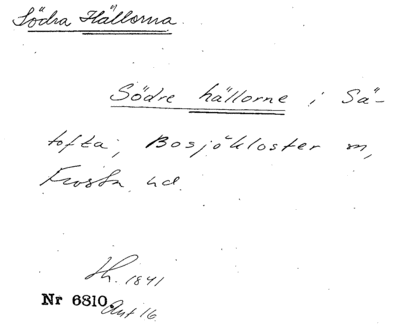 Södra Hällorna.
Södre hällorne i Sä-
tofta, Bosjökloster sn,
Frosta hd.
Sk. 1841
Nr 6810. Akt 16